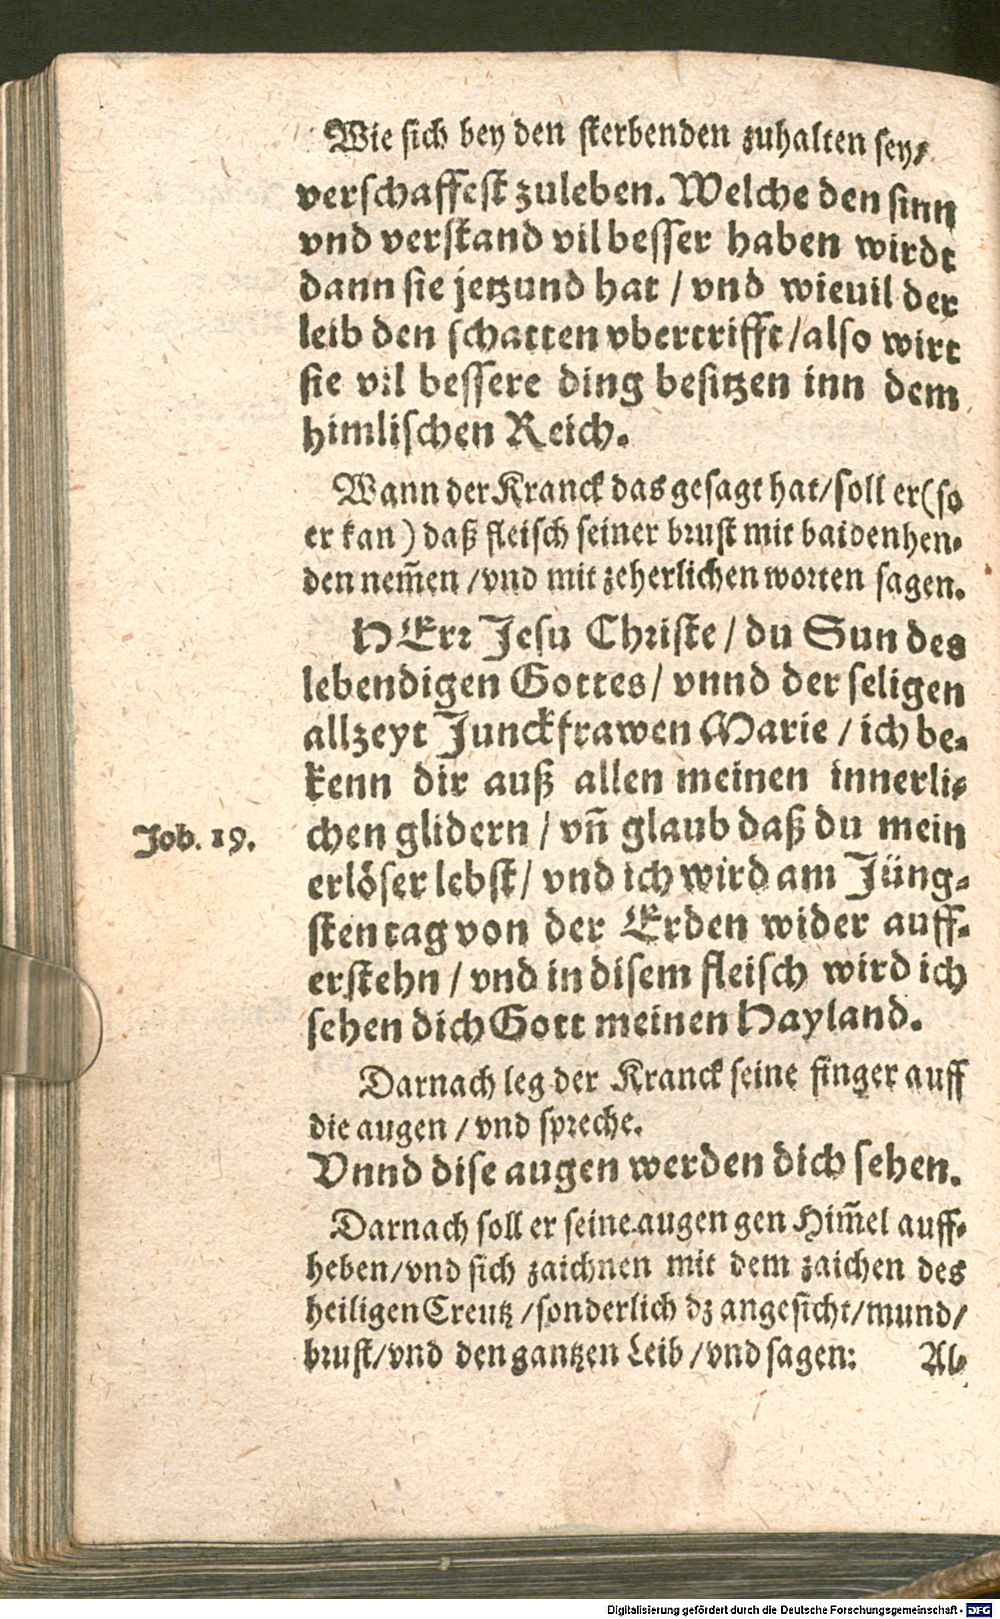 Wie sich bey den sterbenden zuhalten sey/
verschaffest zuleben. Welche den sinn
vnd verstand vil besser haben wirdt
dann sie jetzund hat / vnd wieuil der
leib den schatten vbertrifft / also wirt
sie vil bessere ding besitzen inn dem
himlischen Reich.
Wann der Kranck das gesagt hat/ soll er (so
er kan) daß fleisch seiner brust mit baiden hen-
den nem̃en / vnd mit zeherlichen worten sagen.
HErr Jesu Christe / du Sun des
lebendigen Gottes / vnnd der seligen
allzeyt Junckfrawen Marie / ich be-
kenn dir auß allen meinen innerli-
Job. 19.
chen glidern / vñ glaub daß du mein
erlöser lebst / vnd ich wird am Jüng-
sten tag von der Erden wider auff-
erstehn / vnd in disem fleisch wird ich
sehen dich Gott meinen Hayland.
Darnach leg der Kranck seine finger auff
die augen / vnd spreche.
Vnnd dise augen werden dich sehen.
Darnach soll er seine augen gen Him̃el auff-
heben/ vnd sich zaichnen mit dem zaichen des
heiligen Creutz / sonderlich dz angesicht/ mund/
brust/ vnd den gantzen Leib / vnd sagen:
Al-
Digitalisierung gefördert durch die Deutsche Forschungsgemeinschaft - DFG